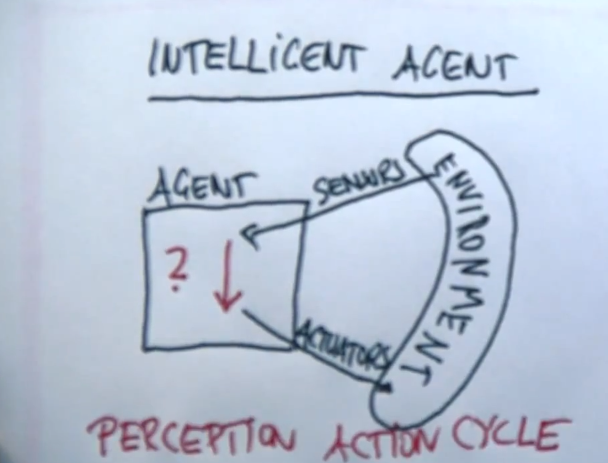 INTELLIGENT AGENT
AGENT
SENSORS
ENVIRONMENT
?
ACTUATORS
PERCEPTION ACTION CYCLE